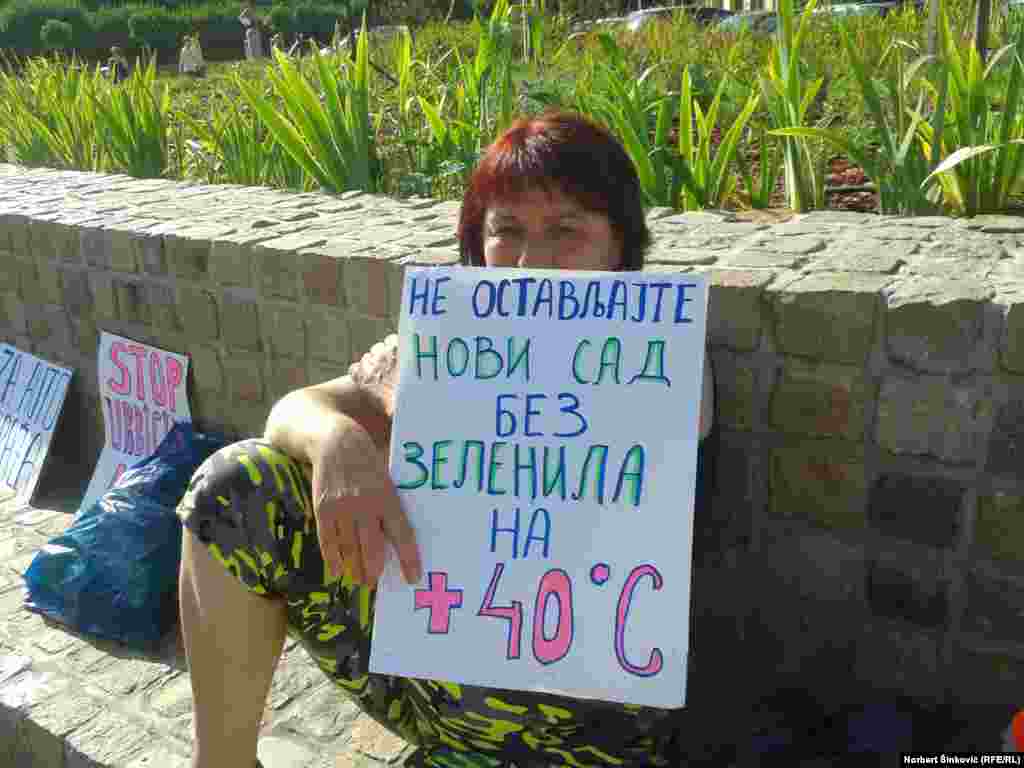 НЕ ОСТАВЉАЈТЕ
НОВИ САД
БЕЗ
ЗЕЛЕНИЛА
НА
+40°C
STOP
ZA
Norbert Šinković (RFE/RL)